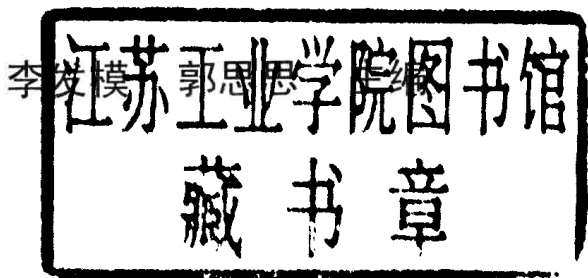 李发模 郭思思 主编
江苏工业学院图书馆
藏书章